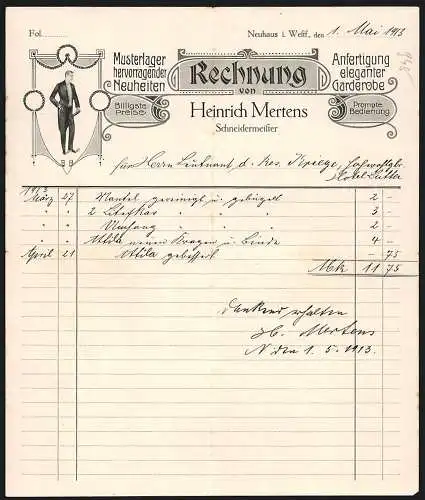 Fol.
Neuhaus i. Westf., den 1. Mai 1913
Musterlager hervorragender Neuheiten
Rechnung
Anfertigung eleganter Garderobe
von
Billigste Preise
Heinrich Mertens
Prompte Bedienung
Schneidermeister
für Herrn Lieutnant d. Res. Kriege,
1913
März 27 Mantel gereinigt u. gebügelt 2 –
" " 2 " " 3 –
" " Umhang " " 2 –
" " Attila neuen Kragen u. Binde 4 –
April 21 Attila gebessert – 75
Mk 11 75
dankend erhalten
H. Mertens
N den 1. 5. 1913.